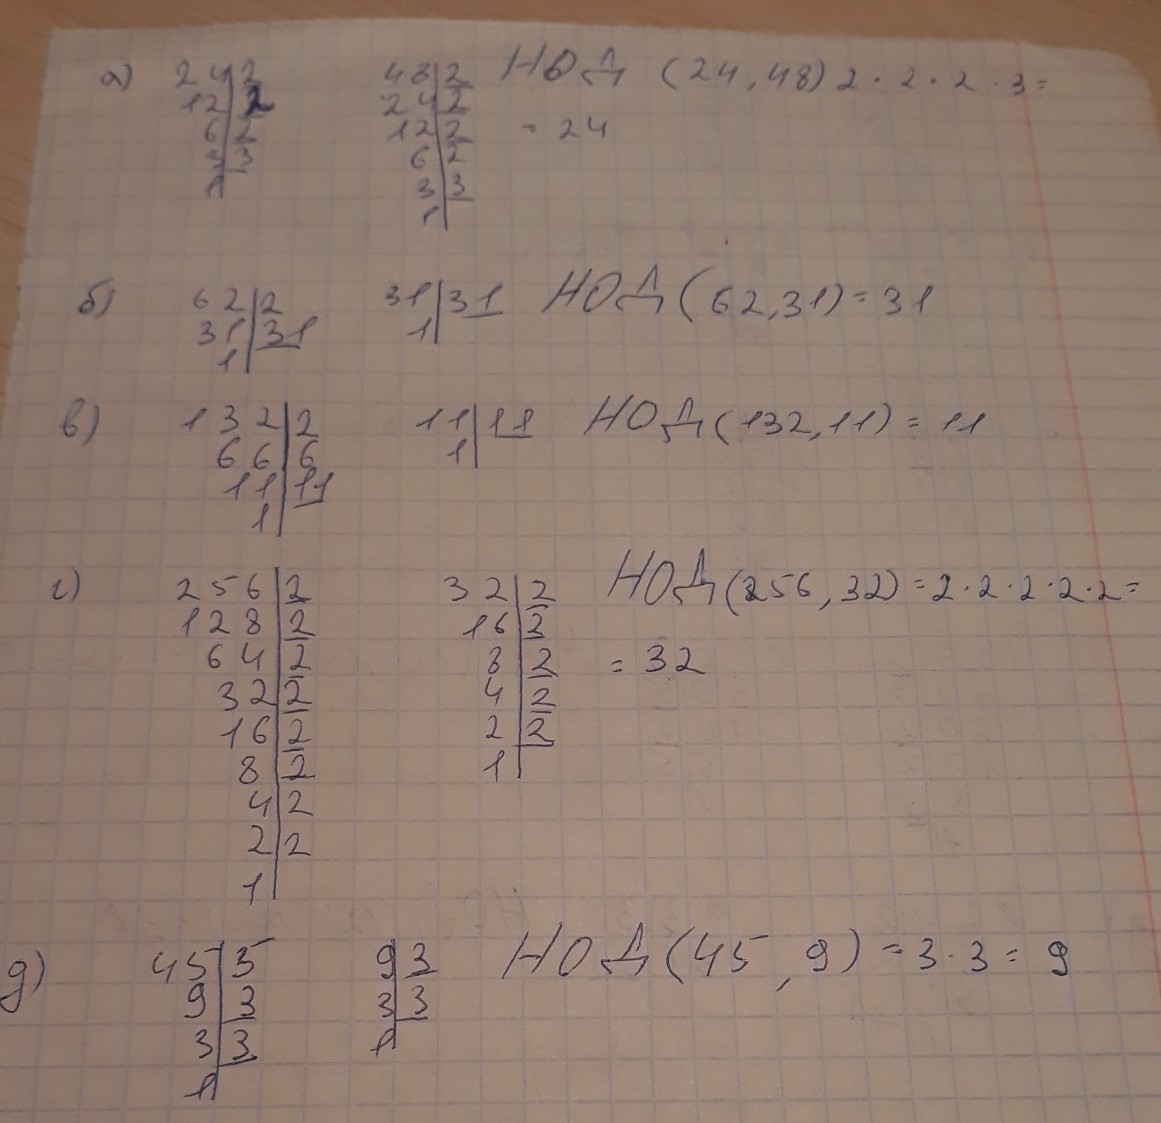 а) 24|2 48|2 НОД (24,48) 2 · 2 · 2 · 3 =
12|2 24|2
6|2 12|2 = 24
3|3 6|2
1| 3|3
1|
б) 62|2 31|31 НОД (62,31) = 31
31|31 1|
1|
в) 132|2 11|11 НОД (132,11) = 11
66|6 1|
11|11
1|
г) 256|2 32|2 НОД (256,32) = 2·2·2·2·2 =
128|2 16|2
64|2 8|2 = 32
32|2 4|2
16|2 2|2
8|2 1|
4|2
2|2
1|
д) 45|5 9|3 НОД (45,9) = 3·3 = 9
9|3 3|3
3|3 1|
1|